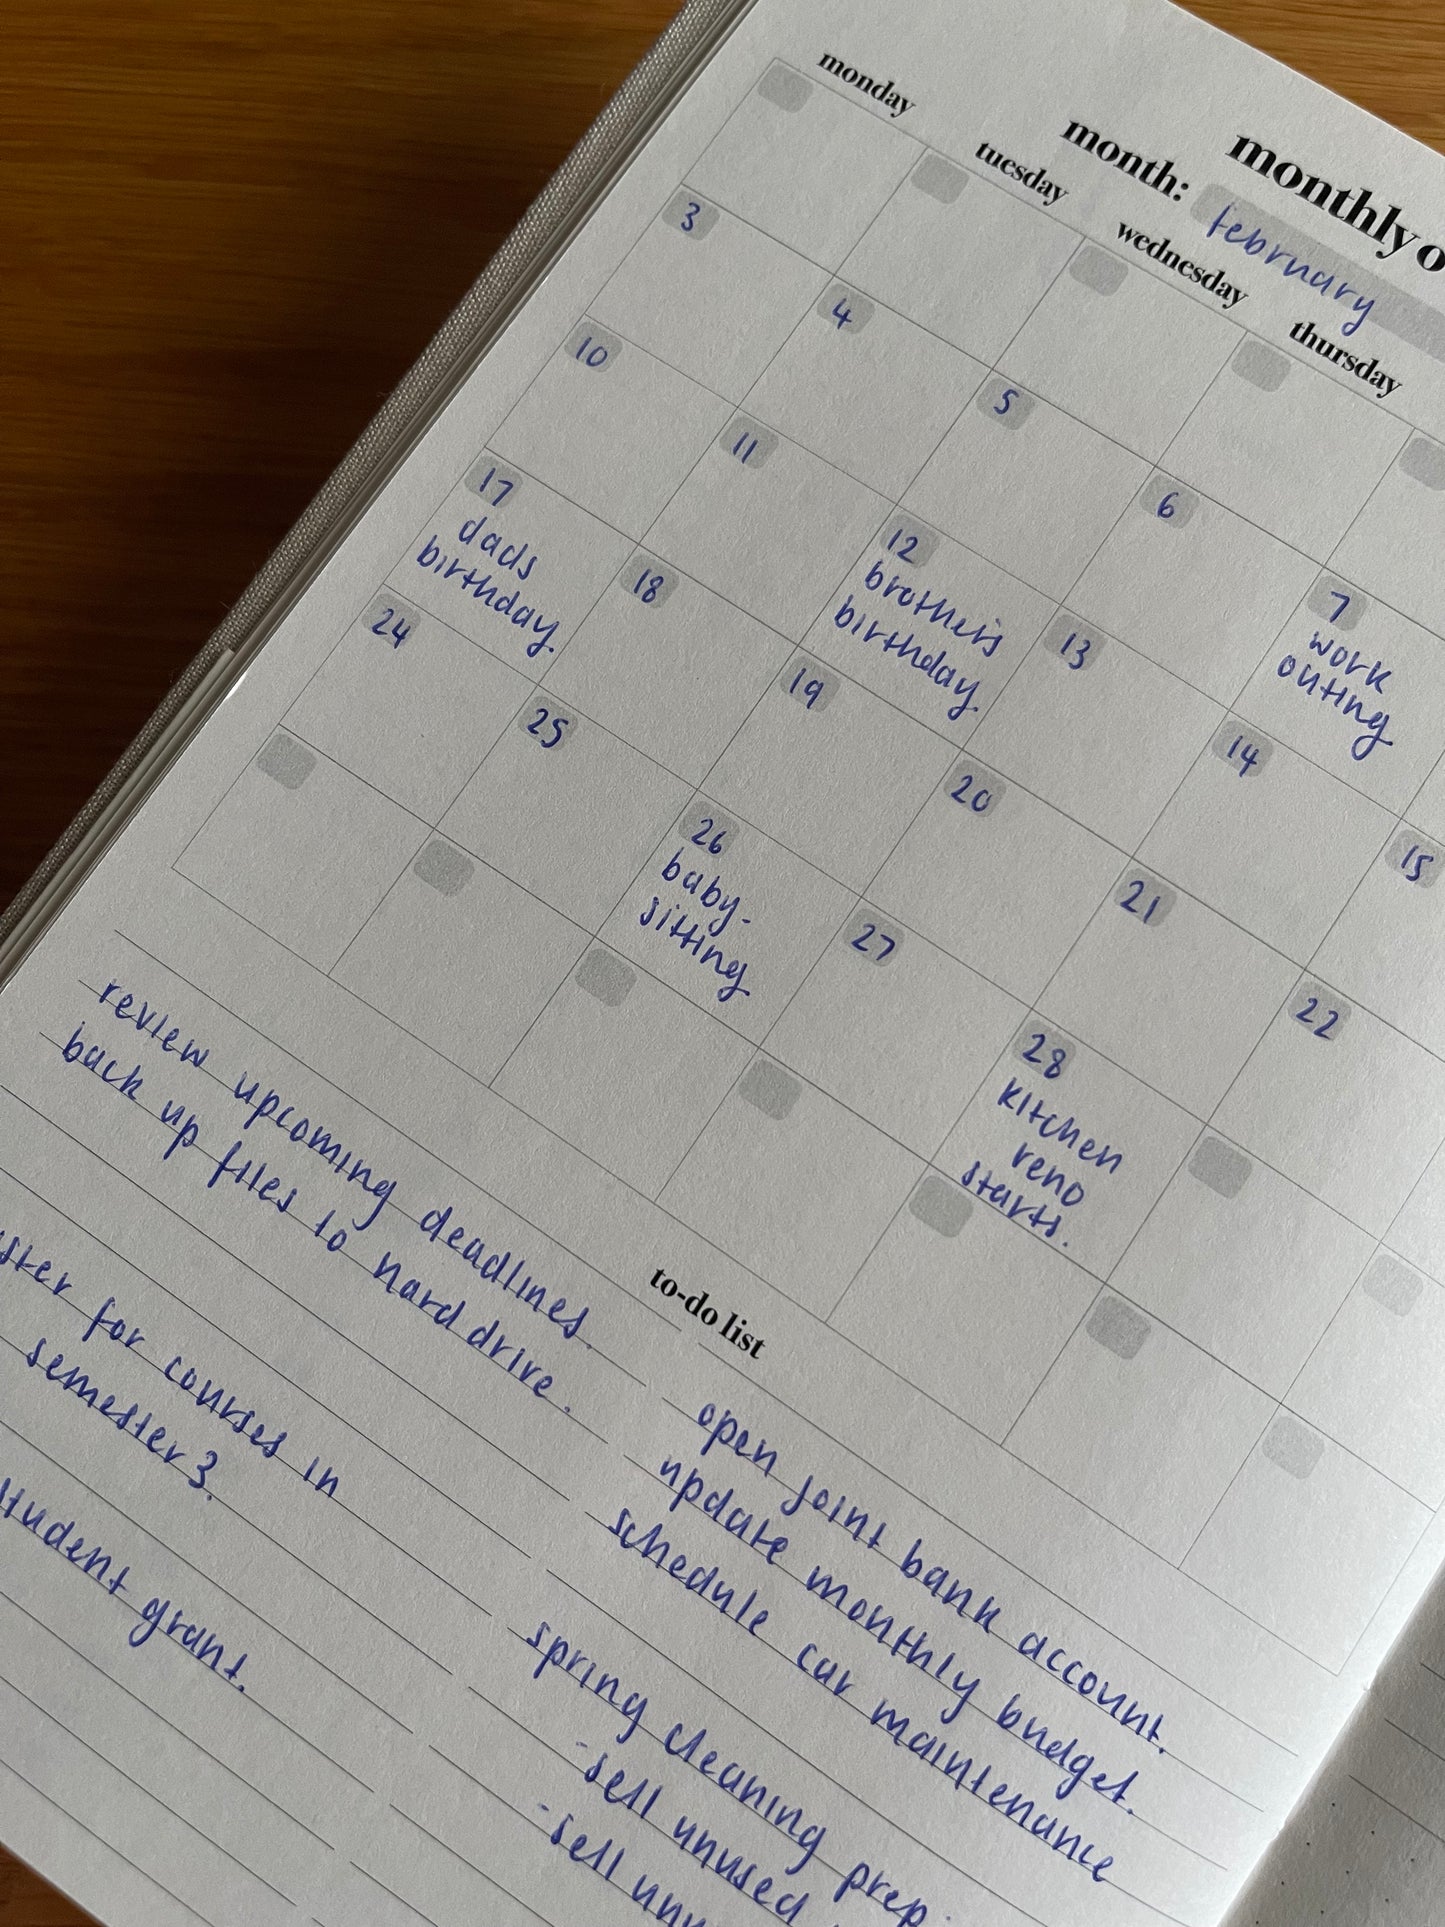 monthly
month: february
monday tuesday wednesday thursday
3 4 5 6 7
work
outing
10 11 12 13 14 15
brother's
birthday.
17 18 19 20 21 22
dads
birthday.
24 25 26 27 28
baby-
sitting
kitchen
reno
starts.
review upcoming deadlines.
back up files to hard drive.
for courses in
semester 3.
student grant.
to-do list
open joint bank account.
update monthly budget.
schedule car maintenance
spring cleaning prep.
- sell unused
- sell